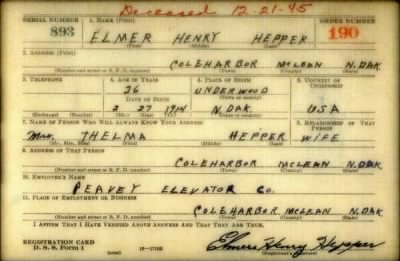 Deceased 12-21-45
SERIAL NUMBER 1. NAME (Print) ORDER NUMBER
893 ELMER HENRY HEPPER 190
(First) (Middle) (Last)
2. ADDRESS (Print)
COLEHARBOR MCLEAN N.DAK
(Number and street or R. F. D. number) (Town) (County) (State)
3. TELEPHONE 4. AGE IN YEARS 5. PLACE OF BIRTH 6. COUNTRY OF CITIZENSHIP
26 UNDERWOOD
DATE OF BIRTH (Town or county)
2 27 1914 N.DAK USA
(Exchange) (Number) (Mo.) (Day) (Yr.) (State or country)
7. NAME OF PERSON WHO WILL ALWAYS KNOW YOUR ADDRESS 8. RELATIONSHIP OF THAT PERSON
Mrs. THELMA HEPPER WIFE
(Mr., Mrs., Miss) (First) (Middle) (Last)
9. ADDRESS OF THAT PERSON
COLEHARBOR MCLEAN N.DAK
(Number and street or R. F. D. number) (Town) (County) (State)
10. EMPLOYER'S NAME
PEAVEY ELEVATOR CO.
11. PLACE OF EMPLOYMENT OR BUSINESS
COLEHARBOR MCLEAN N.DAK
(Number and street or R. F. D. number) (Town) (County) (State)
I AFFIRM THAT I HAVE VERIFIED ABOVE ANSWERS AND THAT THEY ARE TRUE.
REGISTRATION CARD
D. S. S. Form 1 (over) 16-17105 Elmer Henry Hepper
(Registrant's signature)